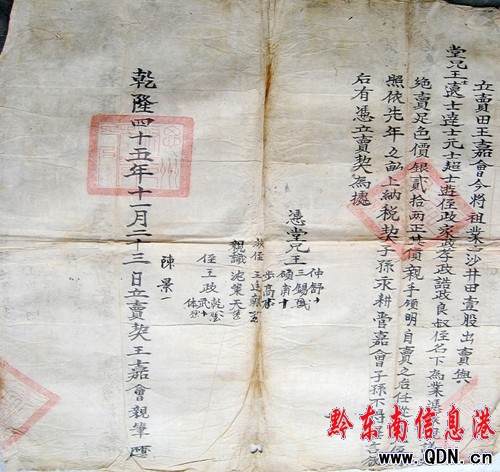 立賣田王嘉會今將祖業沙井田壹股出賣與
堂兄王士遠士達士元士超士遊侄政家政孝政誥政良叔侄名下為業憑
絕賣足色價銀貳拾兩正其價親手領明自賣之后任從
照依先年之畝上納稅契子孫永耕管嘉會子孫不得異言
后有憑立賣契為據
憑堂兄王
仲舒
三錫
碩甫
步高
族侄王廷
親識沈業天
侄王政
陳景一
乾隆四十五年十一月二十三日立賣契王嘉會親筆
黔东南信息港
www.QDN.cn